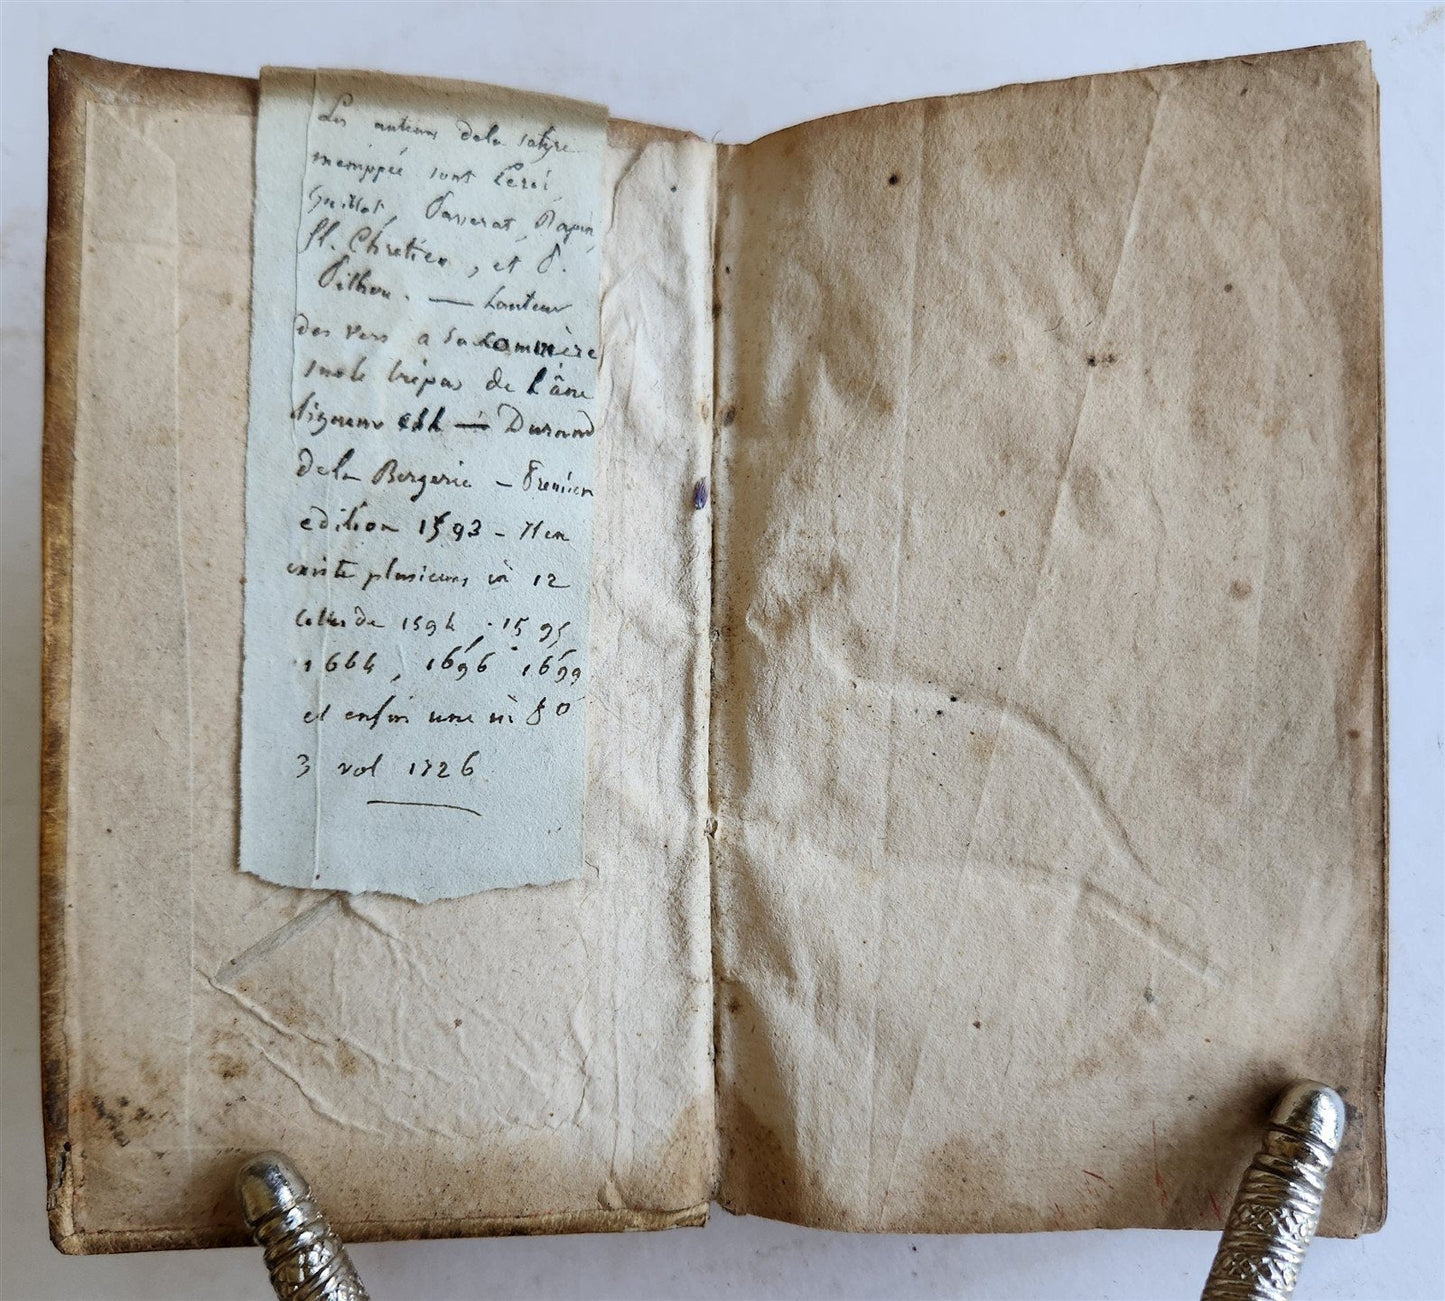 Les auteurs dela satyre
menippée sont Leroi
Guillot, Passerat, Rapin,
fl. Chretien, et P.
Pithou. — Lauteur
des vers a sa commère
sur le trépas de l'âne
ligueur est — Durand
dela Bergerie — Premiere
edition 1593 - Il en
existe plusieurs in 12
celles de 1594, 1595
1664, 1696 1699
et enfin une in 8º
3 vol 1726